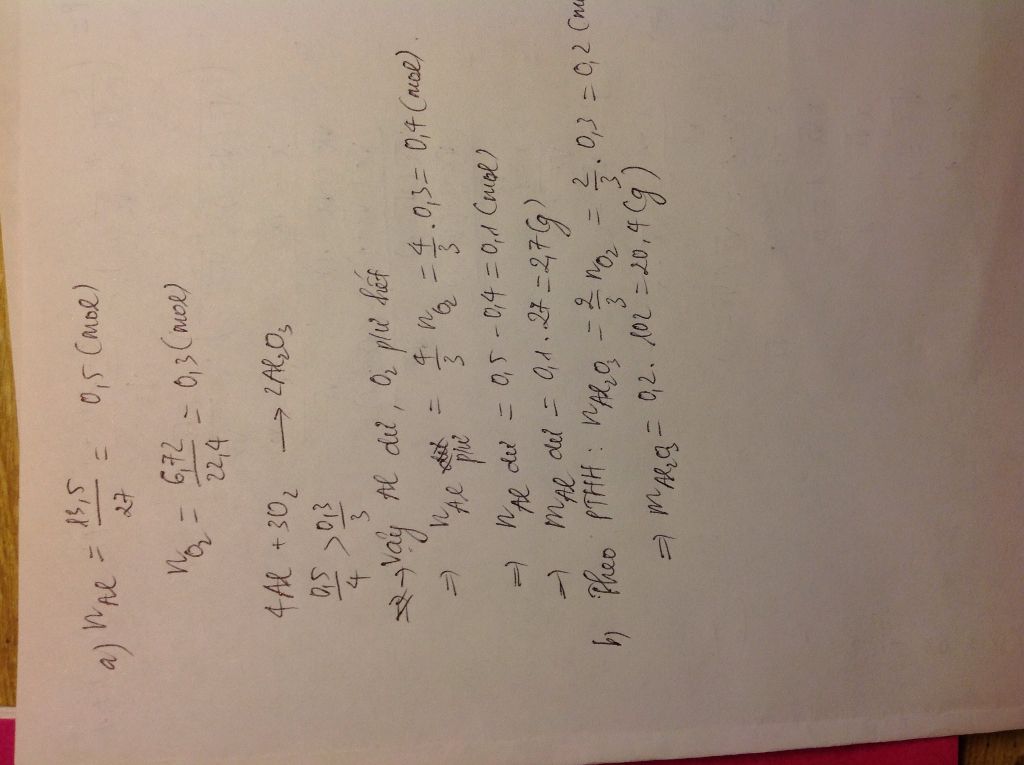 a) nAl = 13,5/27 = 0,5 (mol)
nO₂ = 6,72/22,4 = 0,3 (mol)
4Al + 3O₂ → 2Al₂O₃
0,5/4 > 0,3/3
→ Vậy Al dư, O₂ pứ hết
⇒ nAl pứ = 4/3 nO₂ = 4/3 . 0,3 = 0,4 (mol).
⇒ nAl dư = 0,5 - 0,4 = 0,1 (mol)
⇒ mAl dư = 0,1 . 27 = 2,7 (g)
b) Theo PTHH : nAl₂O₃ = 2/3 nO₂ = 2/3 . 0,3 = 0,2 (m
⇒ mAl₂O₃ = 0,2 . 102 = 20,4 (g)